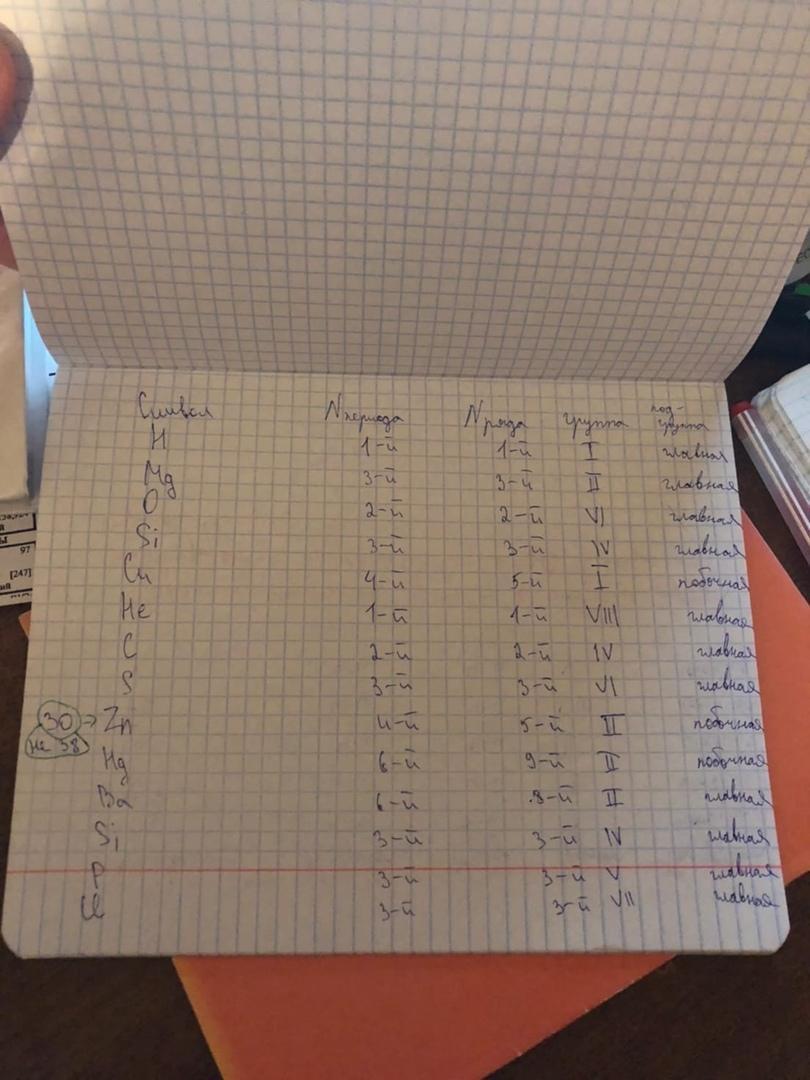 Символ N периода N ряда группа под-группа
H 1-й 1-й I главная
Mg 3-й 3-й II главная
O 2-й 2-й VI главная
Si 3-й 3-й IV главная
Cu 4-й 5-й I побочная
He 1-й 1-й VIII главная
C 2-й 2-й IV главная
S 3-й 3-й VI главная
30 → Zn 4-й 5-й II побочная
не 58
Hg 6-й 9-й II побочная
Ba 6-й 8-й II главная
Si 3-й 3-й IV главная
P 3-й 3-й V главная
Cl 3-й 3-й VII главная
97
[247]